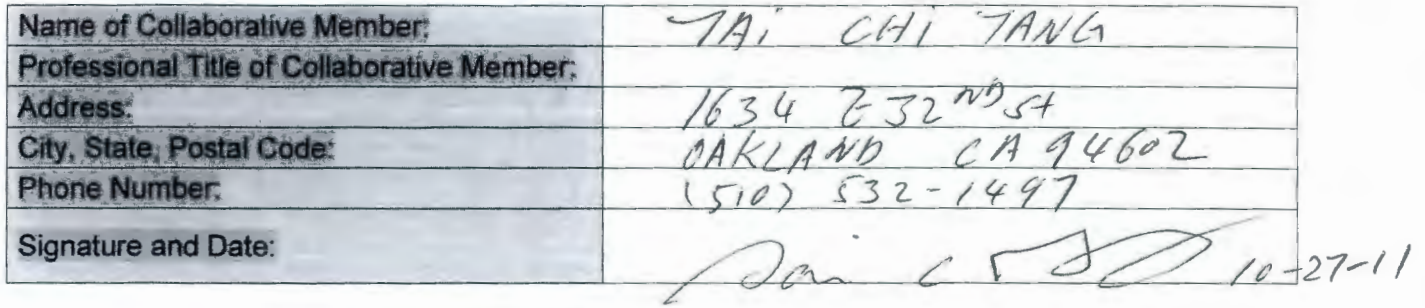 Name of Collaborative Member: TAi CHi TANG
Professional Title of Collaborative Member:
Address: 1634 E 32ND St
City, State, Postal Code: OAKLAND CA 94602
Phone Number: (510) 532-1497
Signature and Date: 10-27-11